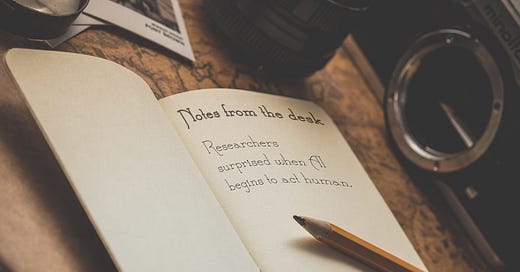 Notes from the desk
Researchers
surprised when AI
begins to act human.
minolta